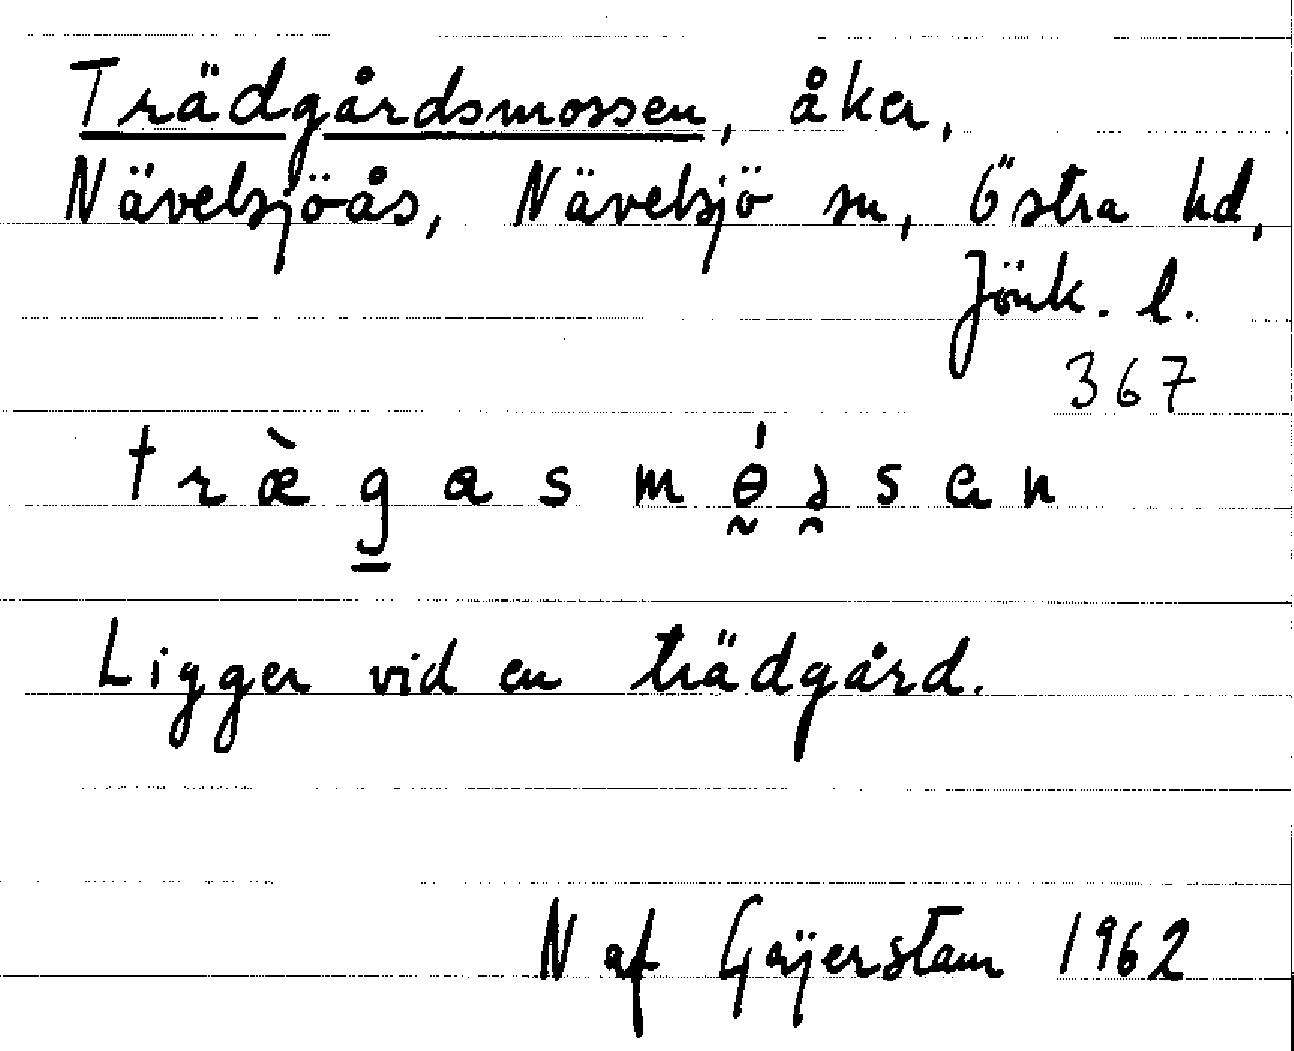 Trädgårdsmossen, åker,
Nävelsjöås, Nävelsjö sn, Östra hd,
Jönk. l.
367
træ̀g̱asmɵ̰́ə̯san
Ligger vid en trädgård.
N af Geijerstam 1962